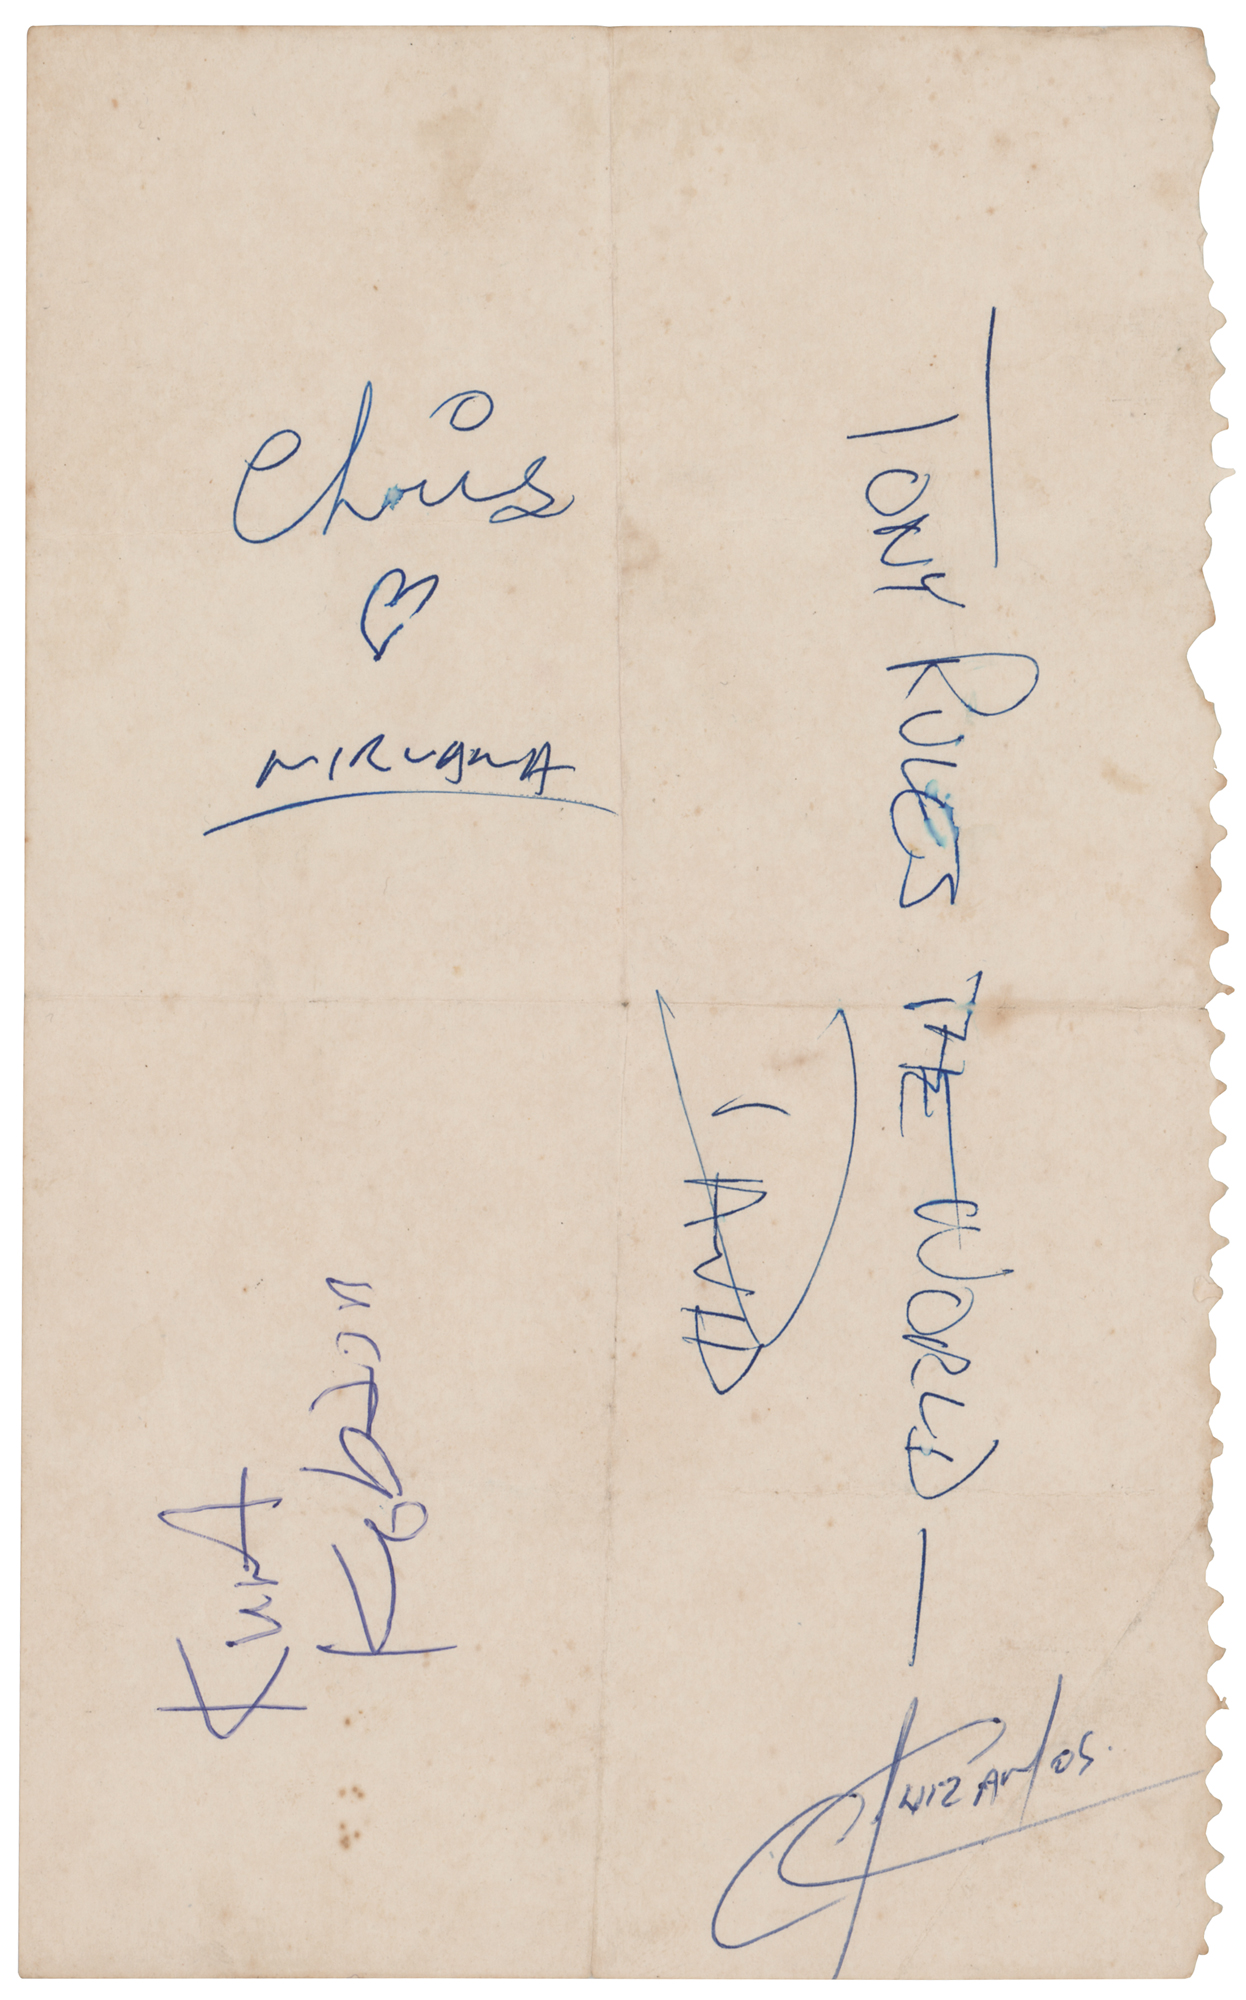 Chris
NIRVANA
TONY RULES THE WORLD
DAVID
Kurt
Kobain